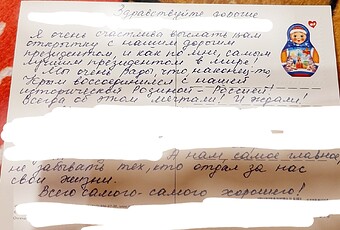 Здравствуйте дорогие
Я очень счастлива выслать вам
открытку с нашим дорогим
президентом, и как по мне, самым
лучшим президентом в мире!
Мы очень рады, что наконец-то,
Крым воссоединился с нашей
исторической Родиной - Россией!
Всегда об этом мечтали! И ждали!
А нам, самое главное,
не забывать тех, кто отдал за нас
свои жизни.
Всего самого-самого хорошего!